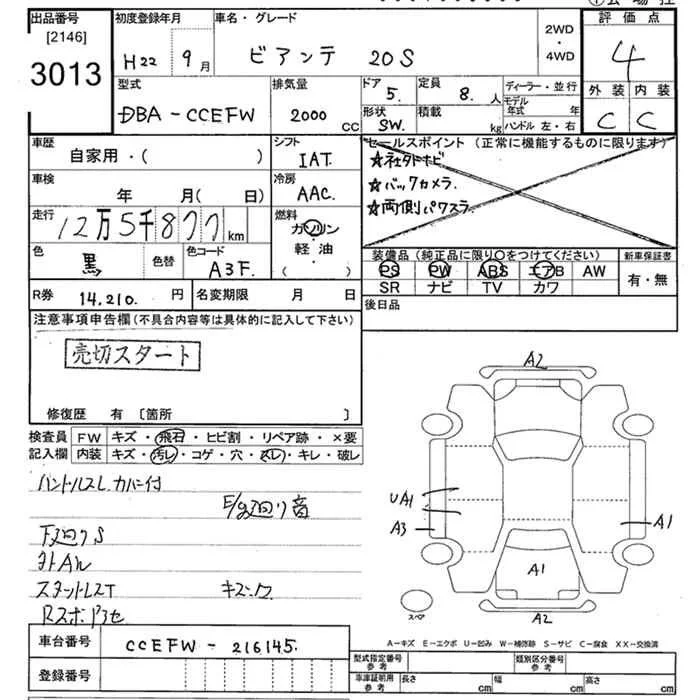 出品番号 初度登録年月 車名・グレード 評価点
[2146]
3013 H22年 9月 ビアンテ 20S 2WD・4WD 4
型式 排気量 ドア 定員 ディーラー・並行 外装 内装
DBA-CCEFW 2000CC 5. 8.人 モデル年式 年 C C
形状 積載
SW. kg ハンドル 左・右
車歴 シフト セールスポイント (正常に機能するものに限ります)
自家用・( ) IAT. ☆社外ナビ
車検 冷房 ☆バックカメラ.
年 月(日) AAC. ☆両側パワスラ.
走行 12万5千877km 燃料 ガソリン
軽油
( )
色 黒 色替 色コード A3F. 装備品 (純正品に限り○をつけてください) 新車保証書
PS PW ABS エアB AW 有・無
SR ナビ TV カワ
R券 14,210.円 名変期限 月 日 後日品
注意事項申告欄(不具合内容等は具体的に記入して下さい)
売切スタート
修復歴 有 〔箇所 〕
検査員 FW キズ・飛石・ヒビ割・リペア跡・×要
記入欄 内装 キズ・汚レ・コゲ・穴・スレ・キレ・破レ
ハンドルスレ カバー付
E/g廻り音
下廻りS
スタットレスT
A2
UA1
A3
A1
A1
A2
スペア
A-キズ E-エクボ U-凹み W-補修跡 S-サビ C-腐食 XX-交換済
車台番号 CCEFW-216145.
登録番号
型式指定番号 参考 類別区分番号 参考
車庫証明用 参考 長さ cm 幅 cm 高さ cm